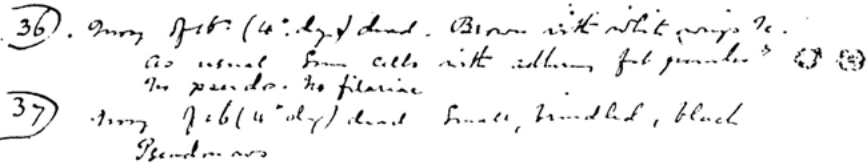 36). Mosq of 16th (4th day) dead. Brown with white wings &c.
as usual. Some cells with adhering fat granules
No pseudo. No filariae
37) Mosq of 16 (4th day) dead Small, brindled, black
Pseudo